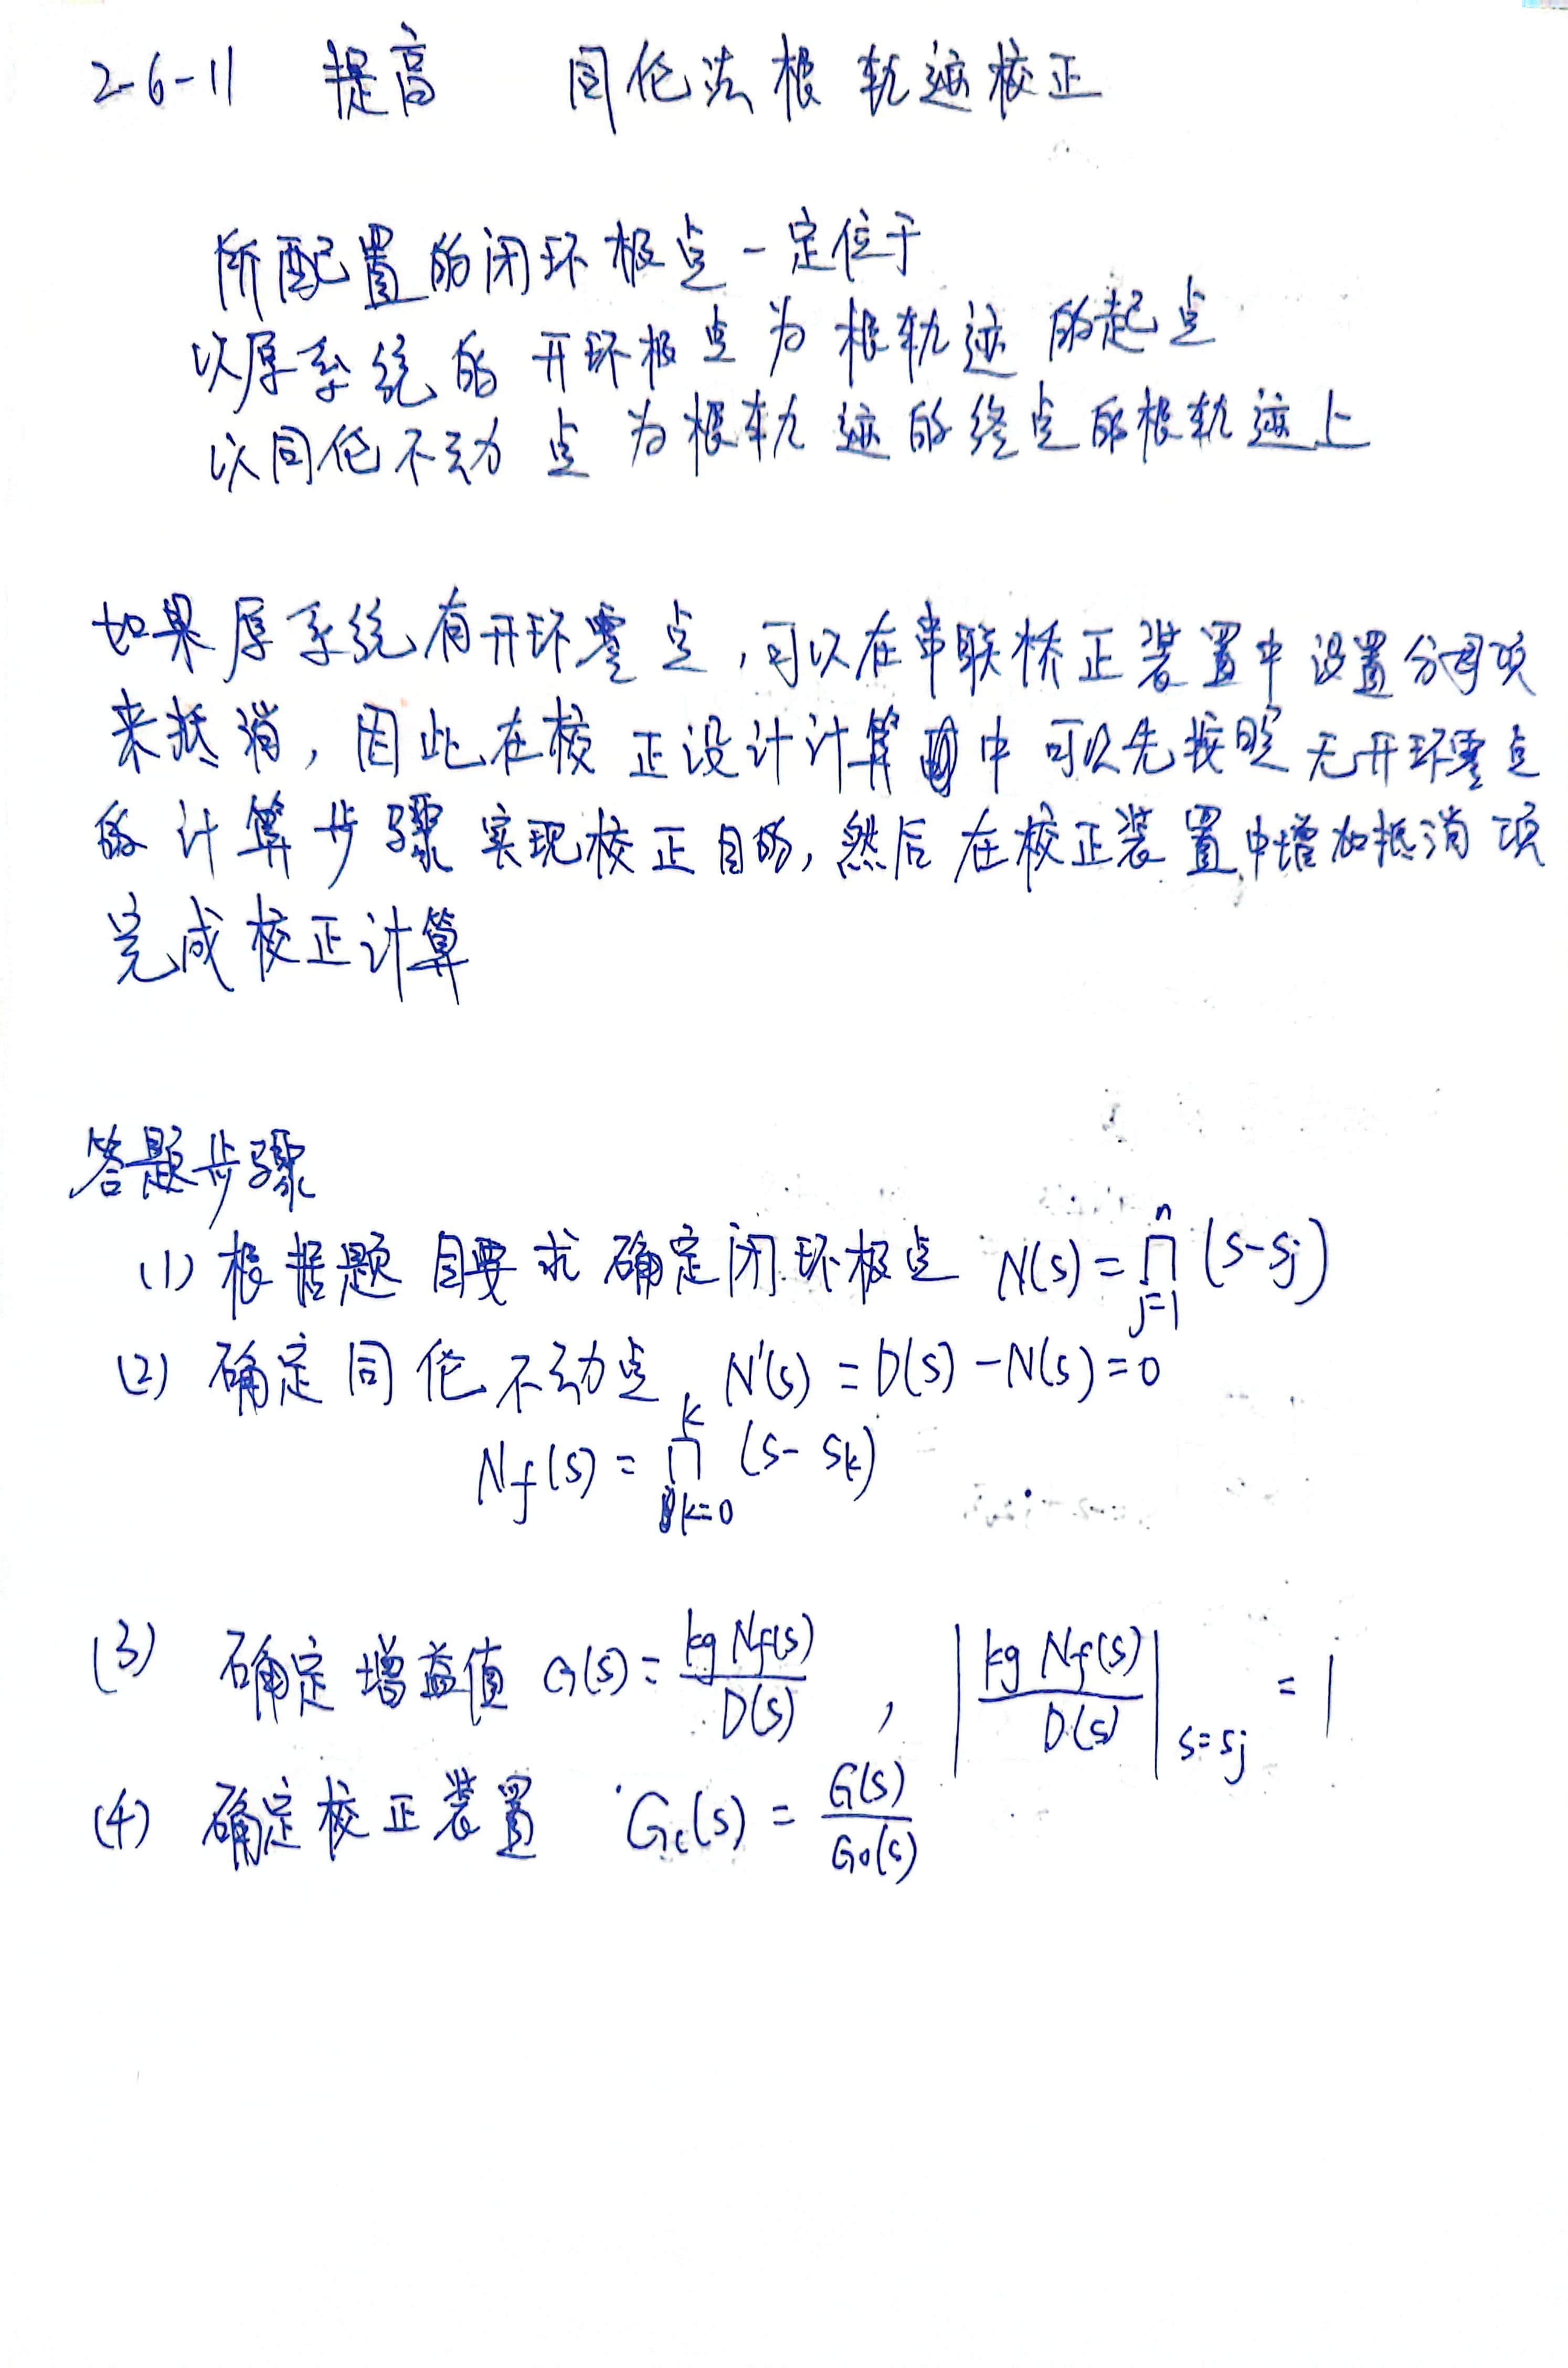 2-6-11 提高 同伦法根轨迹校正
所配置的闭环极点一定位于
以原系统的开环极点为根轨迹的起点
以同伦不动点为根轨迹的终点的根轨迹上
如果原系统有开环零点,可以在串联桥正装置中设置分母项
来抵消,因此在校正设计计算中可以先按照无开环零点
的计算步骤实现校正目的,然后在校正装置中增加抵消项
完成校正计算
答题步骤
(1) 根据题目要求确定闭环极点 N(s)=∏_{j=1}^{n}(s-sj)
(2) 确定同伦不动点, N'(s)=D(s)-N(s)=0
Nf(s)=∏_{k=0}^{k}(s-sk)
(3) 确定增益值 G(s)=\frac{kg Nf(s)}{D(s)} , |\frac{kg Nf(s)}{D(s)}|_{s=sj}=1
(4) 确定校正装置 Gc(s)=\frac{G(s)}{G0(s)}